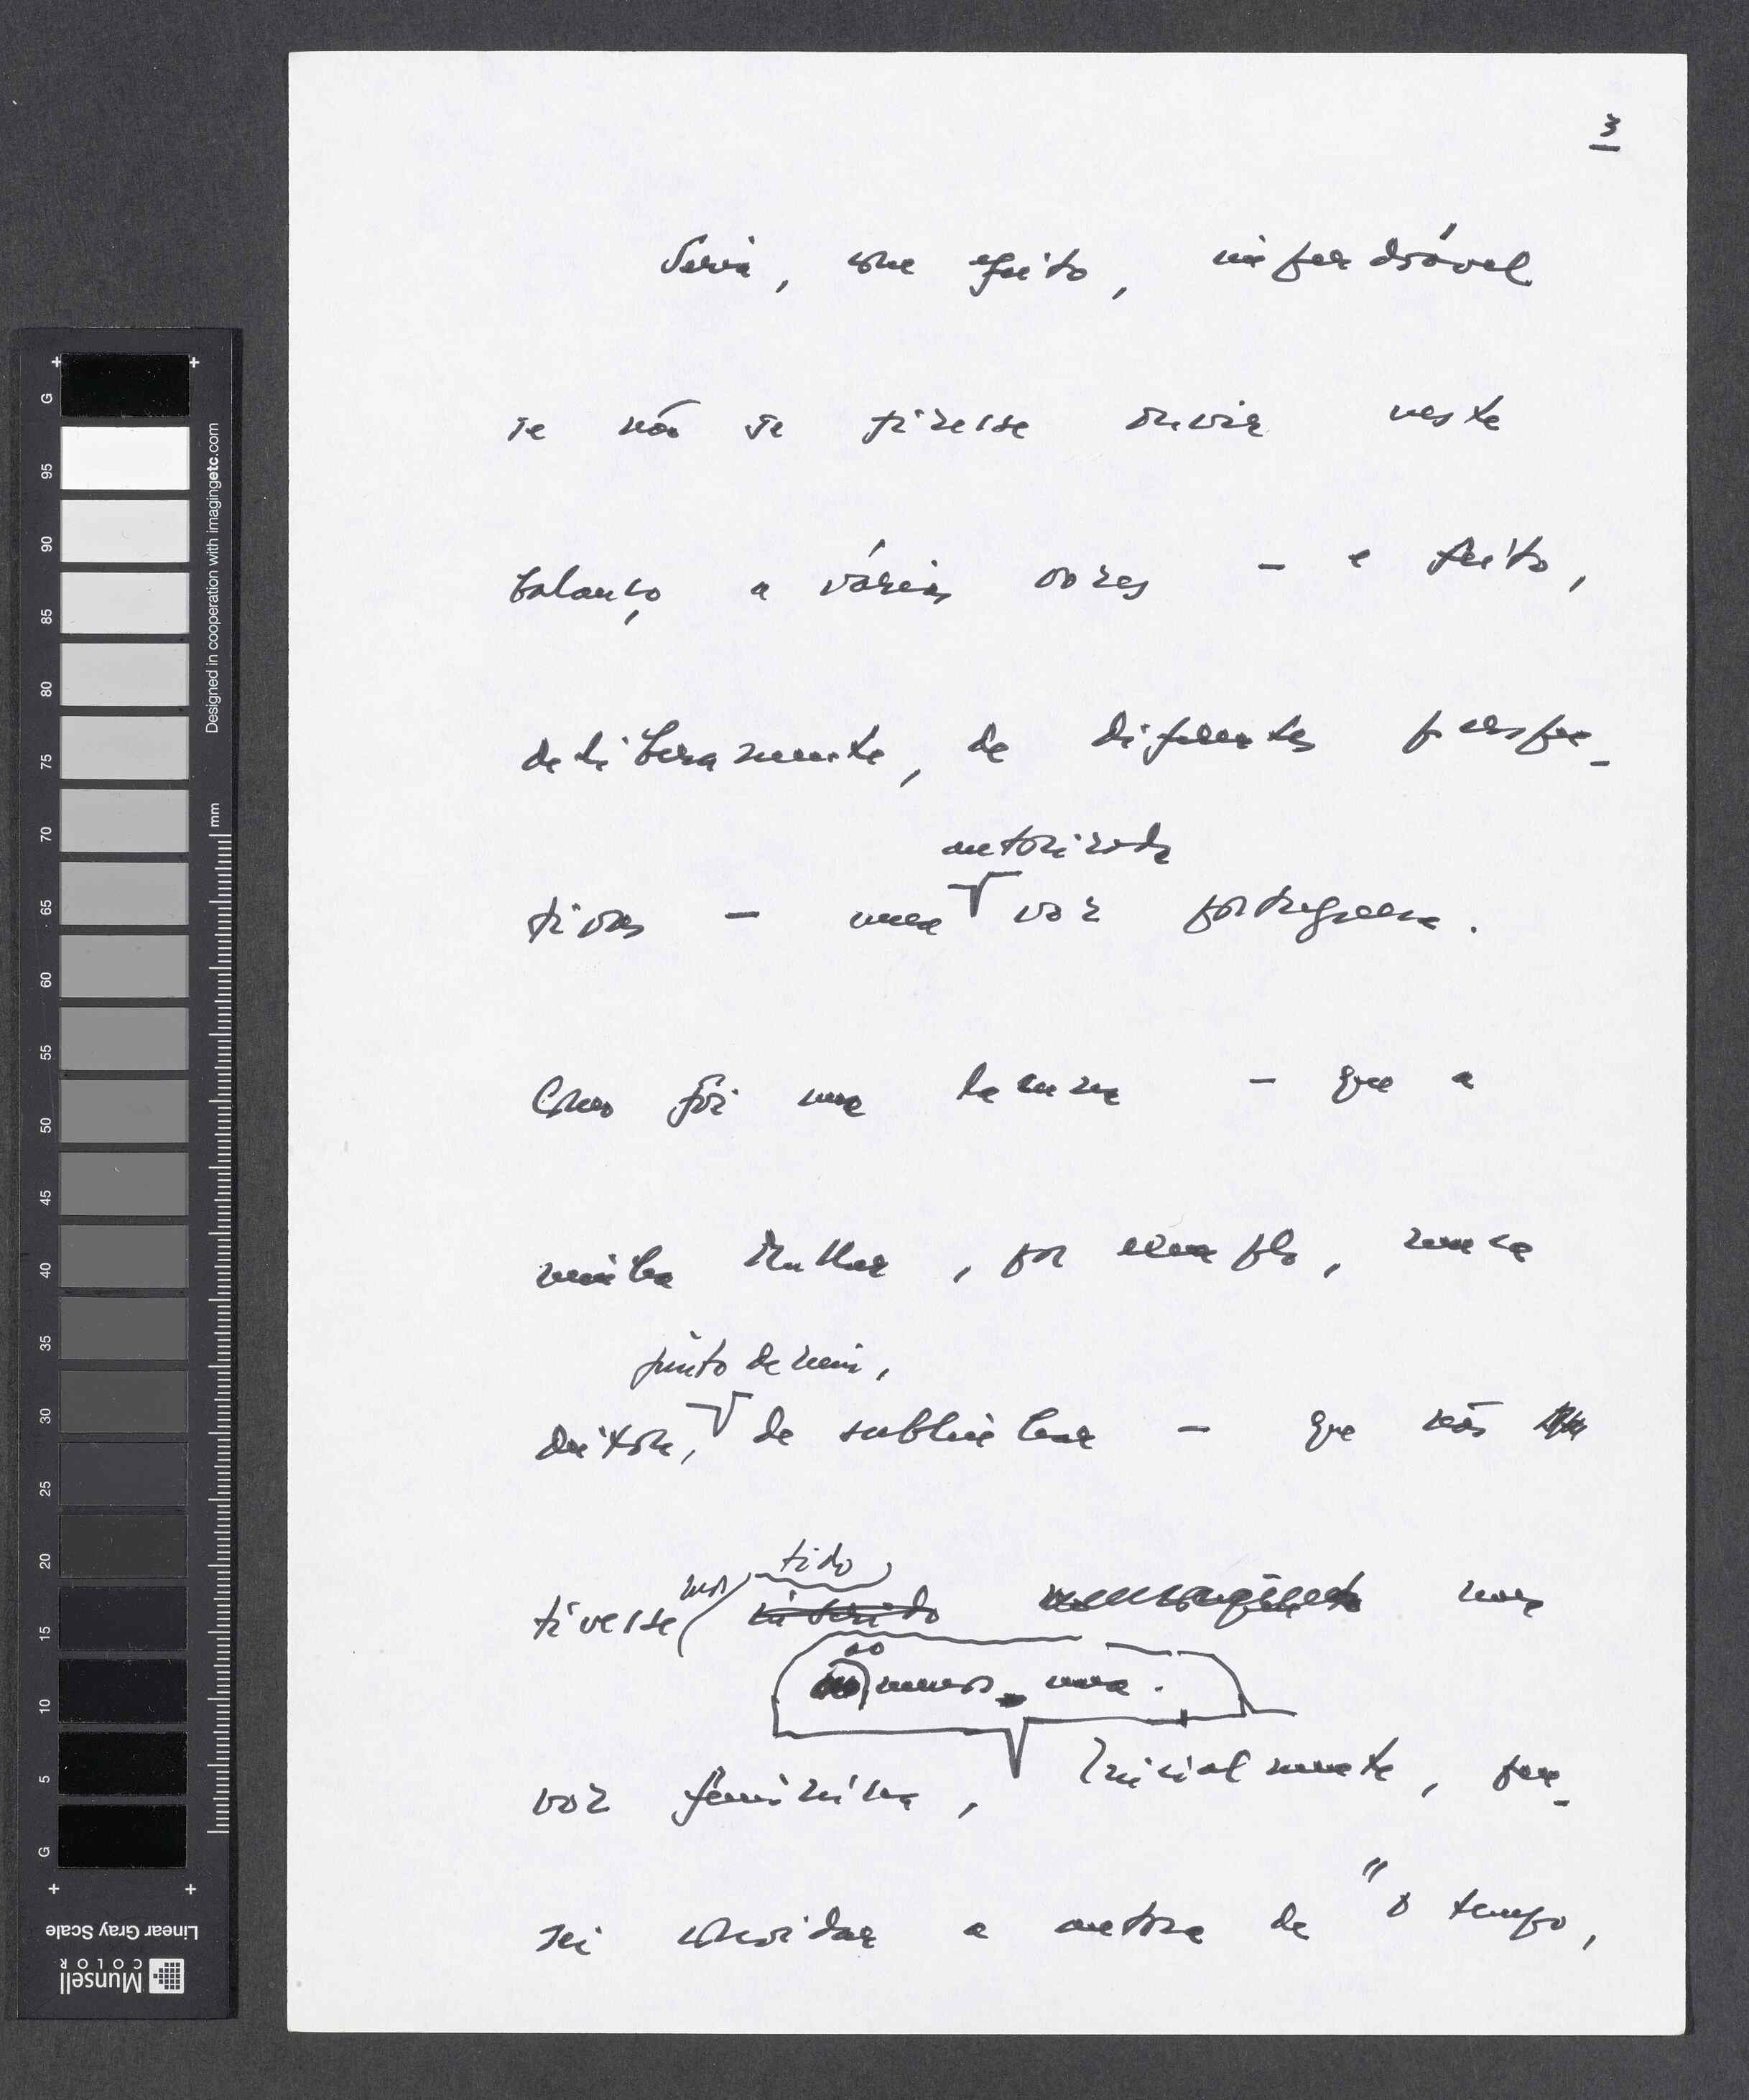 3
Seria, com efeito, imperdoável
se não se fizesse ouvir neste
balanço a várias vozes — e feito,
deliberamente, de diferentes perspec-
autorizada
tivas — uma voz portuguesa.
Como foi uma — que a
minha mulher, por exemplo, nunca
junto de mim,
deixou, de sublinhar — que não
tido
tivesse
ao menos uma.
voz feminina, Inicialmente, pen-
sei convidar a autora de "O tempo,
G
95
90
85
80
75
70
65
60
55
50
45
40
35
30
25
20
15
10
5
G
mm
Designed in cooperation with imagingetc.com
Linear Gray Scale
Munsell
COLOR